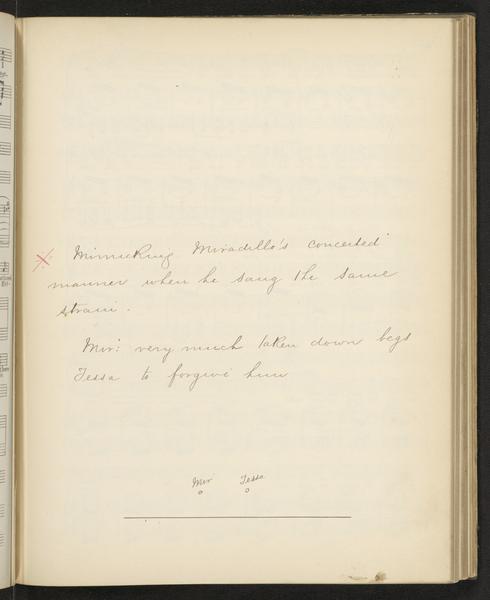 Mimicking Miradillo's conceited
manner when he sang the same
strain.
Mir: very much taken down begs
Tessa to forgive him
Mir Tessa